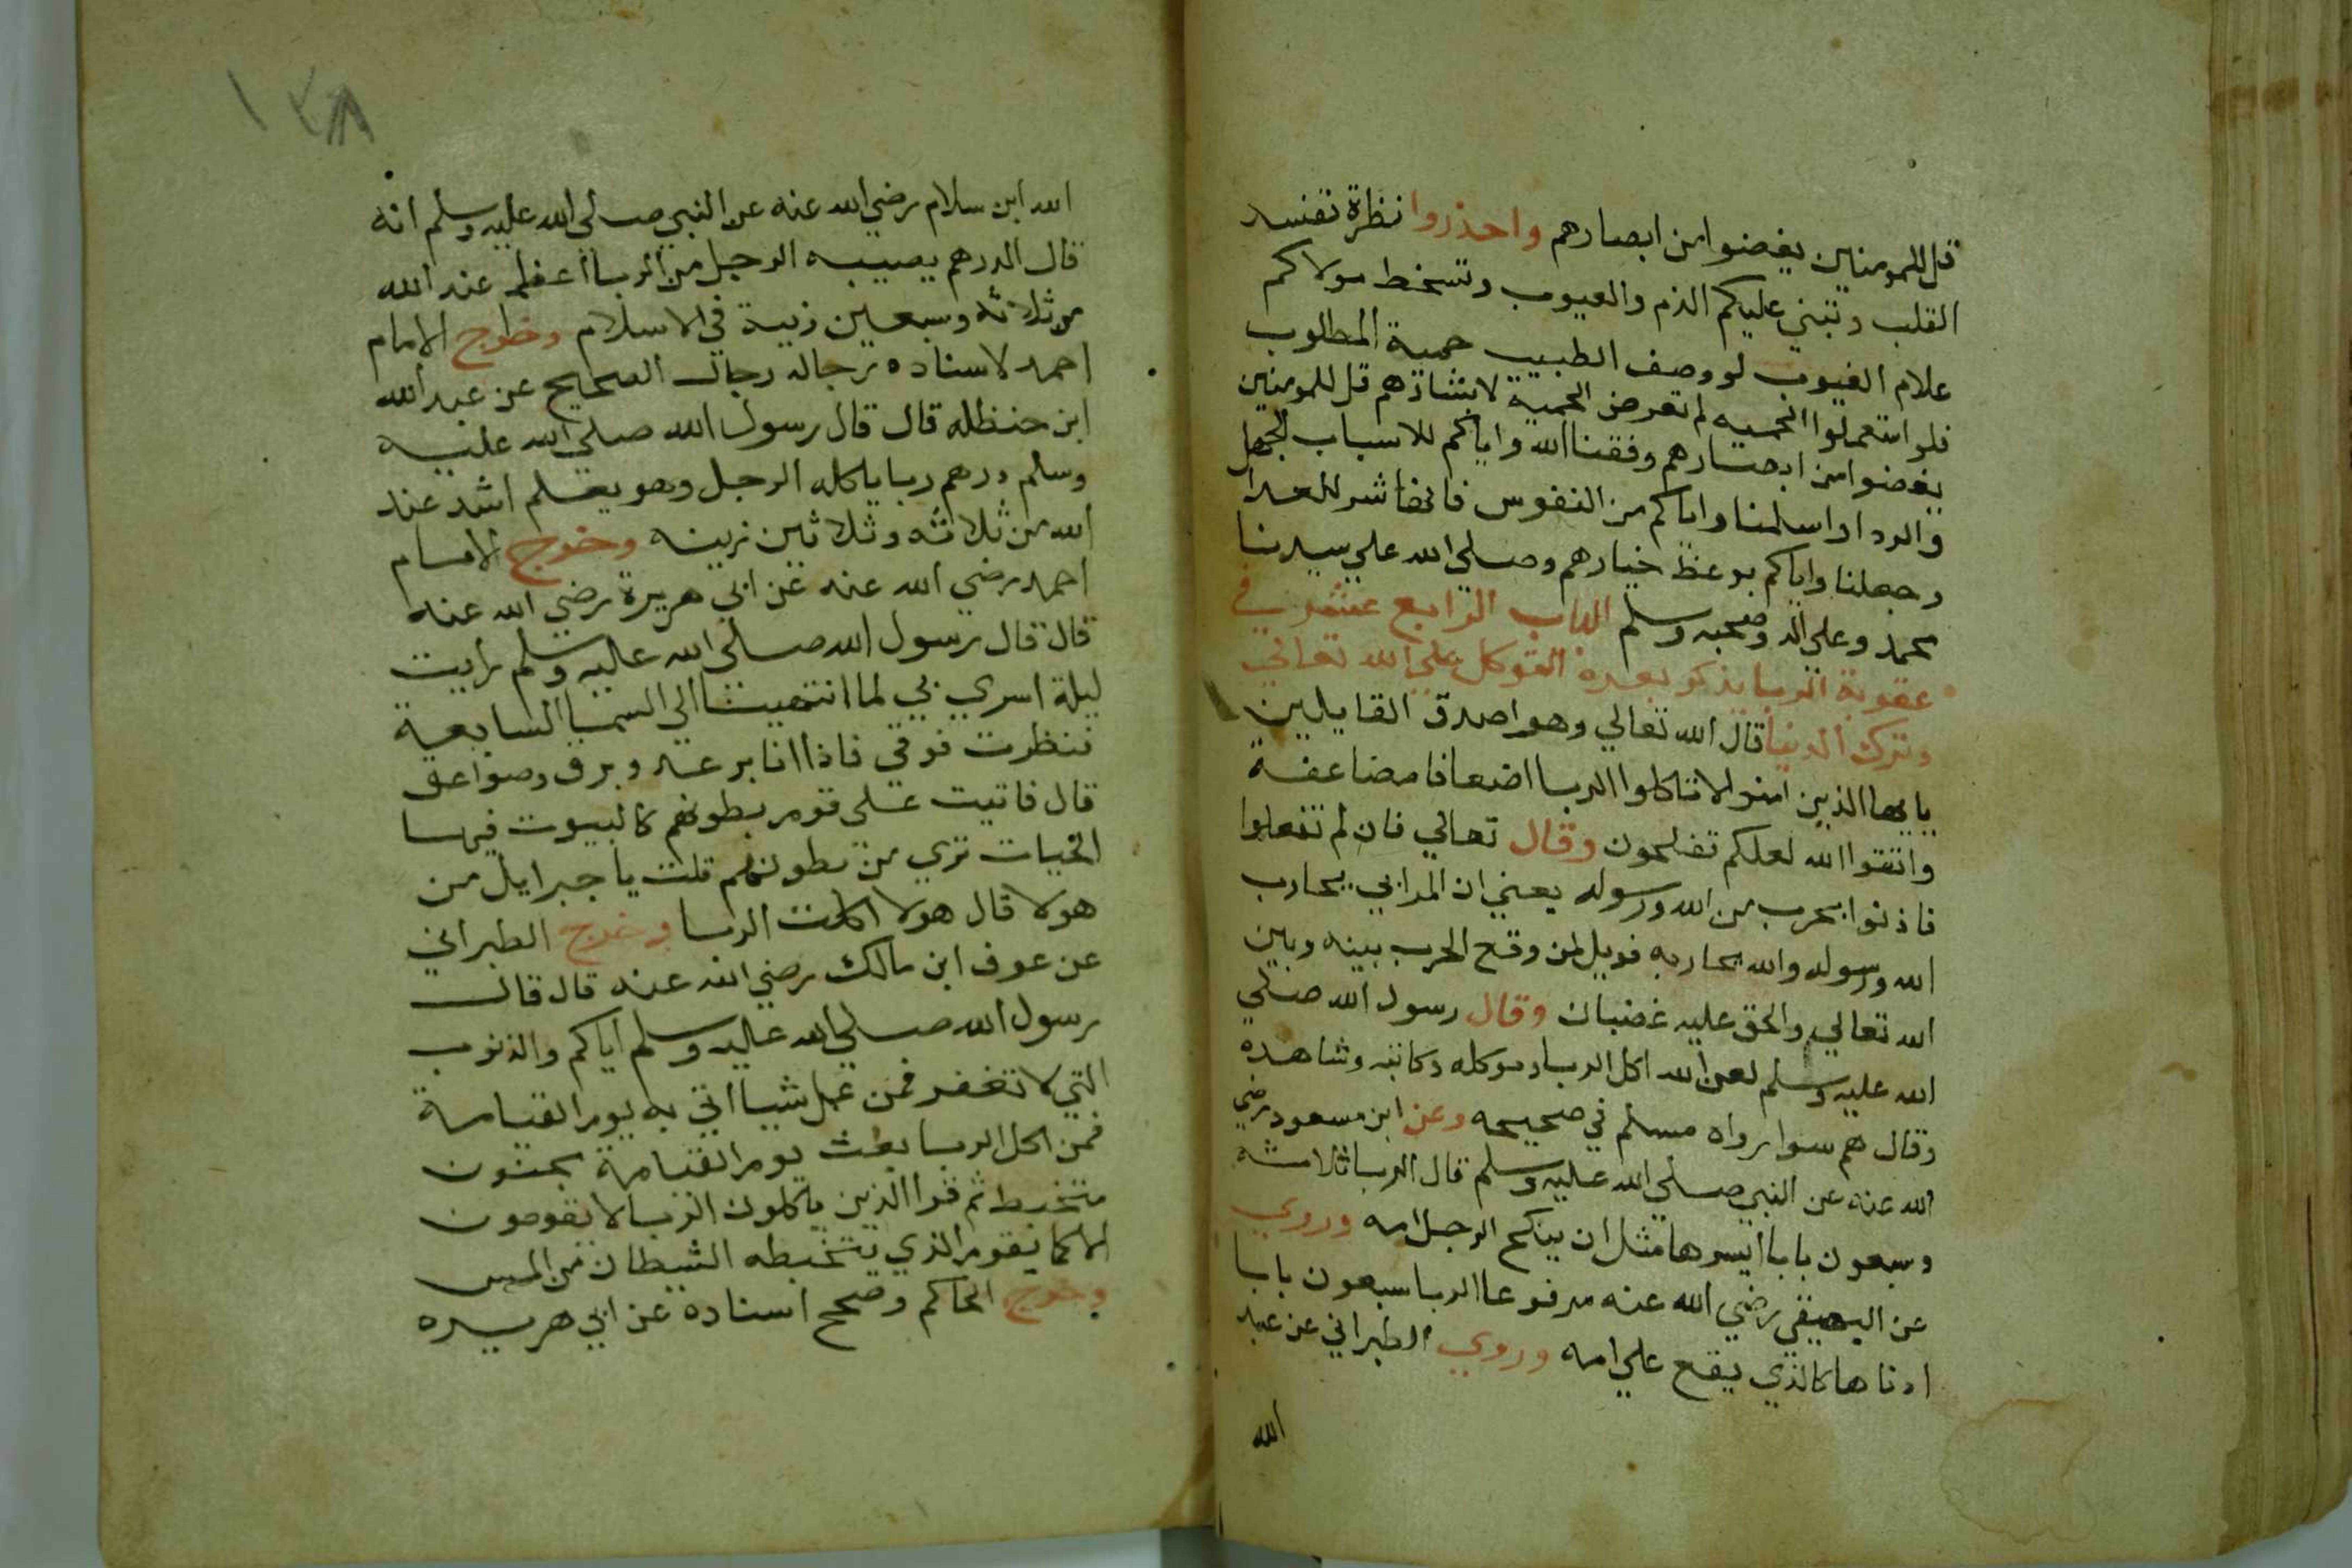 قل للمومنين يغضوا من ابصارهم واحذروا نظرة تفسد
القلب وتبني عليكم الذم والعيوب وتسخط مولاكم
علام الغيوب لو وصف الطبيب حمية المطلوب
فلو استعملوا الحميه لم تعرض الحمية قل للمومنين
يغضوا من ابصارهم وفقنا الله واياكم للاسباب
واسلمنا واياكم من النفوس
وجعلنا واياكم بوعظ خيارهم وصلي الله علي سيدنا
محمد وعلي اله وصحبه وسلم الباب الرابع عشر في
عقوبة الربا يذكر بعده التوكل علي الله تعالي
وترك الدنيا قال الله تعالي وهو اصدق القايلين
يايها الذين امنوا لا تاكلوا الربا اضعافا مضاعفة
واتقوا الله لعلكم تفلحون وقال تعالي فان لم تفعلوا
فاذنوا بحرب من الله ورسوله يعني ان المرابي يحارب
الله ورسوله والله يحاربه فويل لمن وقع الحرب بينه وبين
الله تعالي والحق عليه غضبان وقال رسول الله صلي
الله عليه وسلم لعن الله اكل الربا وموكله وكاتبه وشاهده
وقال هم سوا رواه مسلم في صحيحه وعن ابن مسعود رضي
الله عنه عن النبي صلي الله عليه وسلم قال الربا ثلاثه
وسبعون بابا ايسرها مثل ان ينكح الرجل امه وروي
عن البيهقي رضي الله عنه مرفوعا الربا سبعون بابا
ادناها كالذي يقع علي امه وروي الطبراني عن عبد
الله
١٢٨
الله ابن سلام رضي الله عنه عن النبي صلي الله عليه وسلم انه
قال الدرهم يصيبه الرجل من الربا اعظم عند الله
من ثلاثه وسبعين زنية في الاسلام وخرج الامام
احمد لاسناده رجاله رجال الصحيح عن عبد الله
ابن حنظله قال قال رسول الله صلي الله عليه
وسلم درهم ربا ياكله الرجل وهو يعلم اشد عند
الله من ثلاثه وثلاثين زينه وخرج الامام
احمد رضي الله عنه عن ابي هريرة رضي الله عنه
قال قال رسول الله صلي الله عليه وسلم رايت
ليلة اسري بي لما انتهيت الي السما السابعة
فنظرت فوقي فاذا انا برعد وبرق وصواعق
قال فاتيت علي قوم بطونهم كالبيوت فيها
الحيات تري من بطونهم قلت يا جبرايل من
هولا قال هولا اكلت الربا وخرج الطبراني
عن عوف ابن مالك رضي الله عنه قال قال
رسول الله صلي الله عليه وسلم اياكم والذنوب
التي لا تغفر فمن عمل شيا اتي به يوم القيامة
فمن اكل الربا بعث يوم القيامة بجنون
متخبط ثم قرا الذين ياكلون الربا لا يقومون
الا كما يقوم الذي يتخبطه الشيطان من المس
وخرج الحاكم وصحح اسناده عن ابي هريره